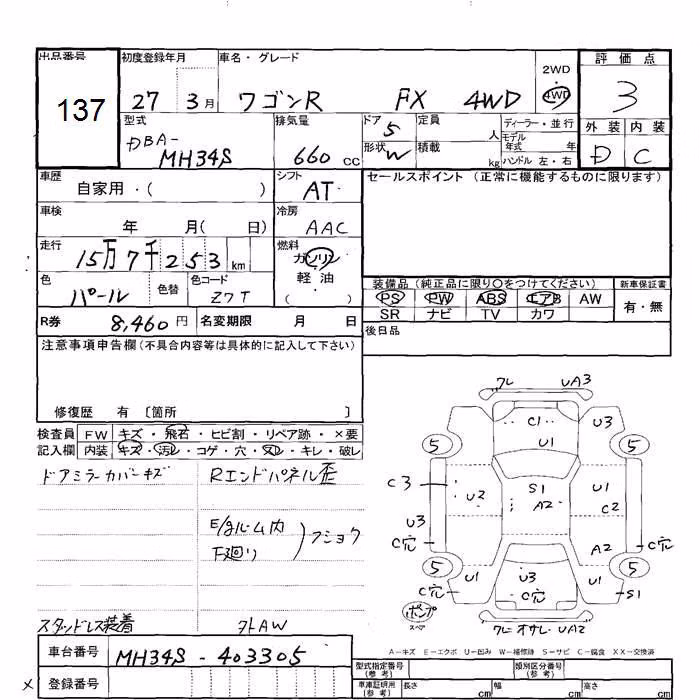 出品番号 初度登録年月 車名・グレード 2WD 評価点
137 27 3月 ワゴンR FX 4WD 4WD 3
型式 排気量 ドア 定員 ディーラー・並行 外装 内装
DBA- 5 人 モデル年式 年
MH34S 660 cc 形状 W 積載 kg ハンドル 左・右 D C
車歴 シフト セールスポイント (正常に機能するものに限ります)
自家用・( ) AT
車検 冷房
年 月( 日) AAC
走行 燃料
15万7千253 km ガソリン
色 色替 色コード 軽油 装備品 (純正品に限り○をつけてください) 新車保証書
パール Z7T ( ) PS PW ABS エアB AW 有・無
R券 8,460円 名変期限 月 日 SR ナビ TV カワ
注意事項申告欄(不具合内容等は具体的に記入して下さい) 後日品
修復歴 有 〔箇所 〕
検査員 FW キズ・飛石・ヒビ割・リペア跡・×要
記入欄 内装 キズ・汚レ・コゲ・穴・スレ・キレ・破レ
ドアミラーカバーキズ Rエンドパネル歪
E/gルーム内
下廻り フショク
スタッドレス装着 外AW
ワレ UA3
C1 U3
5 U1 5
C3 U2 S1 U1
A2 C2
U3
C穴 A2 C穴
5 U1 U3 U1 5
C穴 C穴 S1
ポンプ
スペア ワレ オサレ UA2
A-キズ E-エクボ U-凹み W-補修跡 S-サビ C-腐食 XX-交換済
車台番号 MH34S-403305 型式指定番号(参考) 類別区分番号(参考)
× 登録番号 車庫証明用(参考) 長さ cm 幅 cm 高さ cm